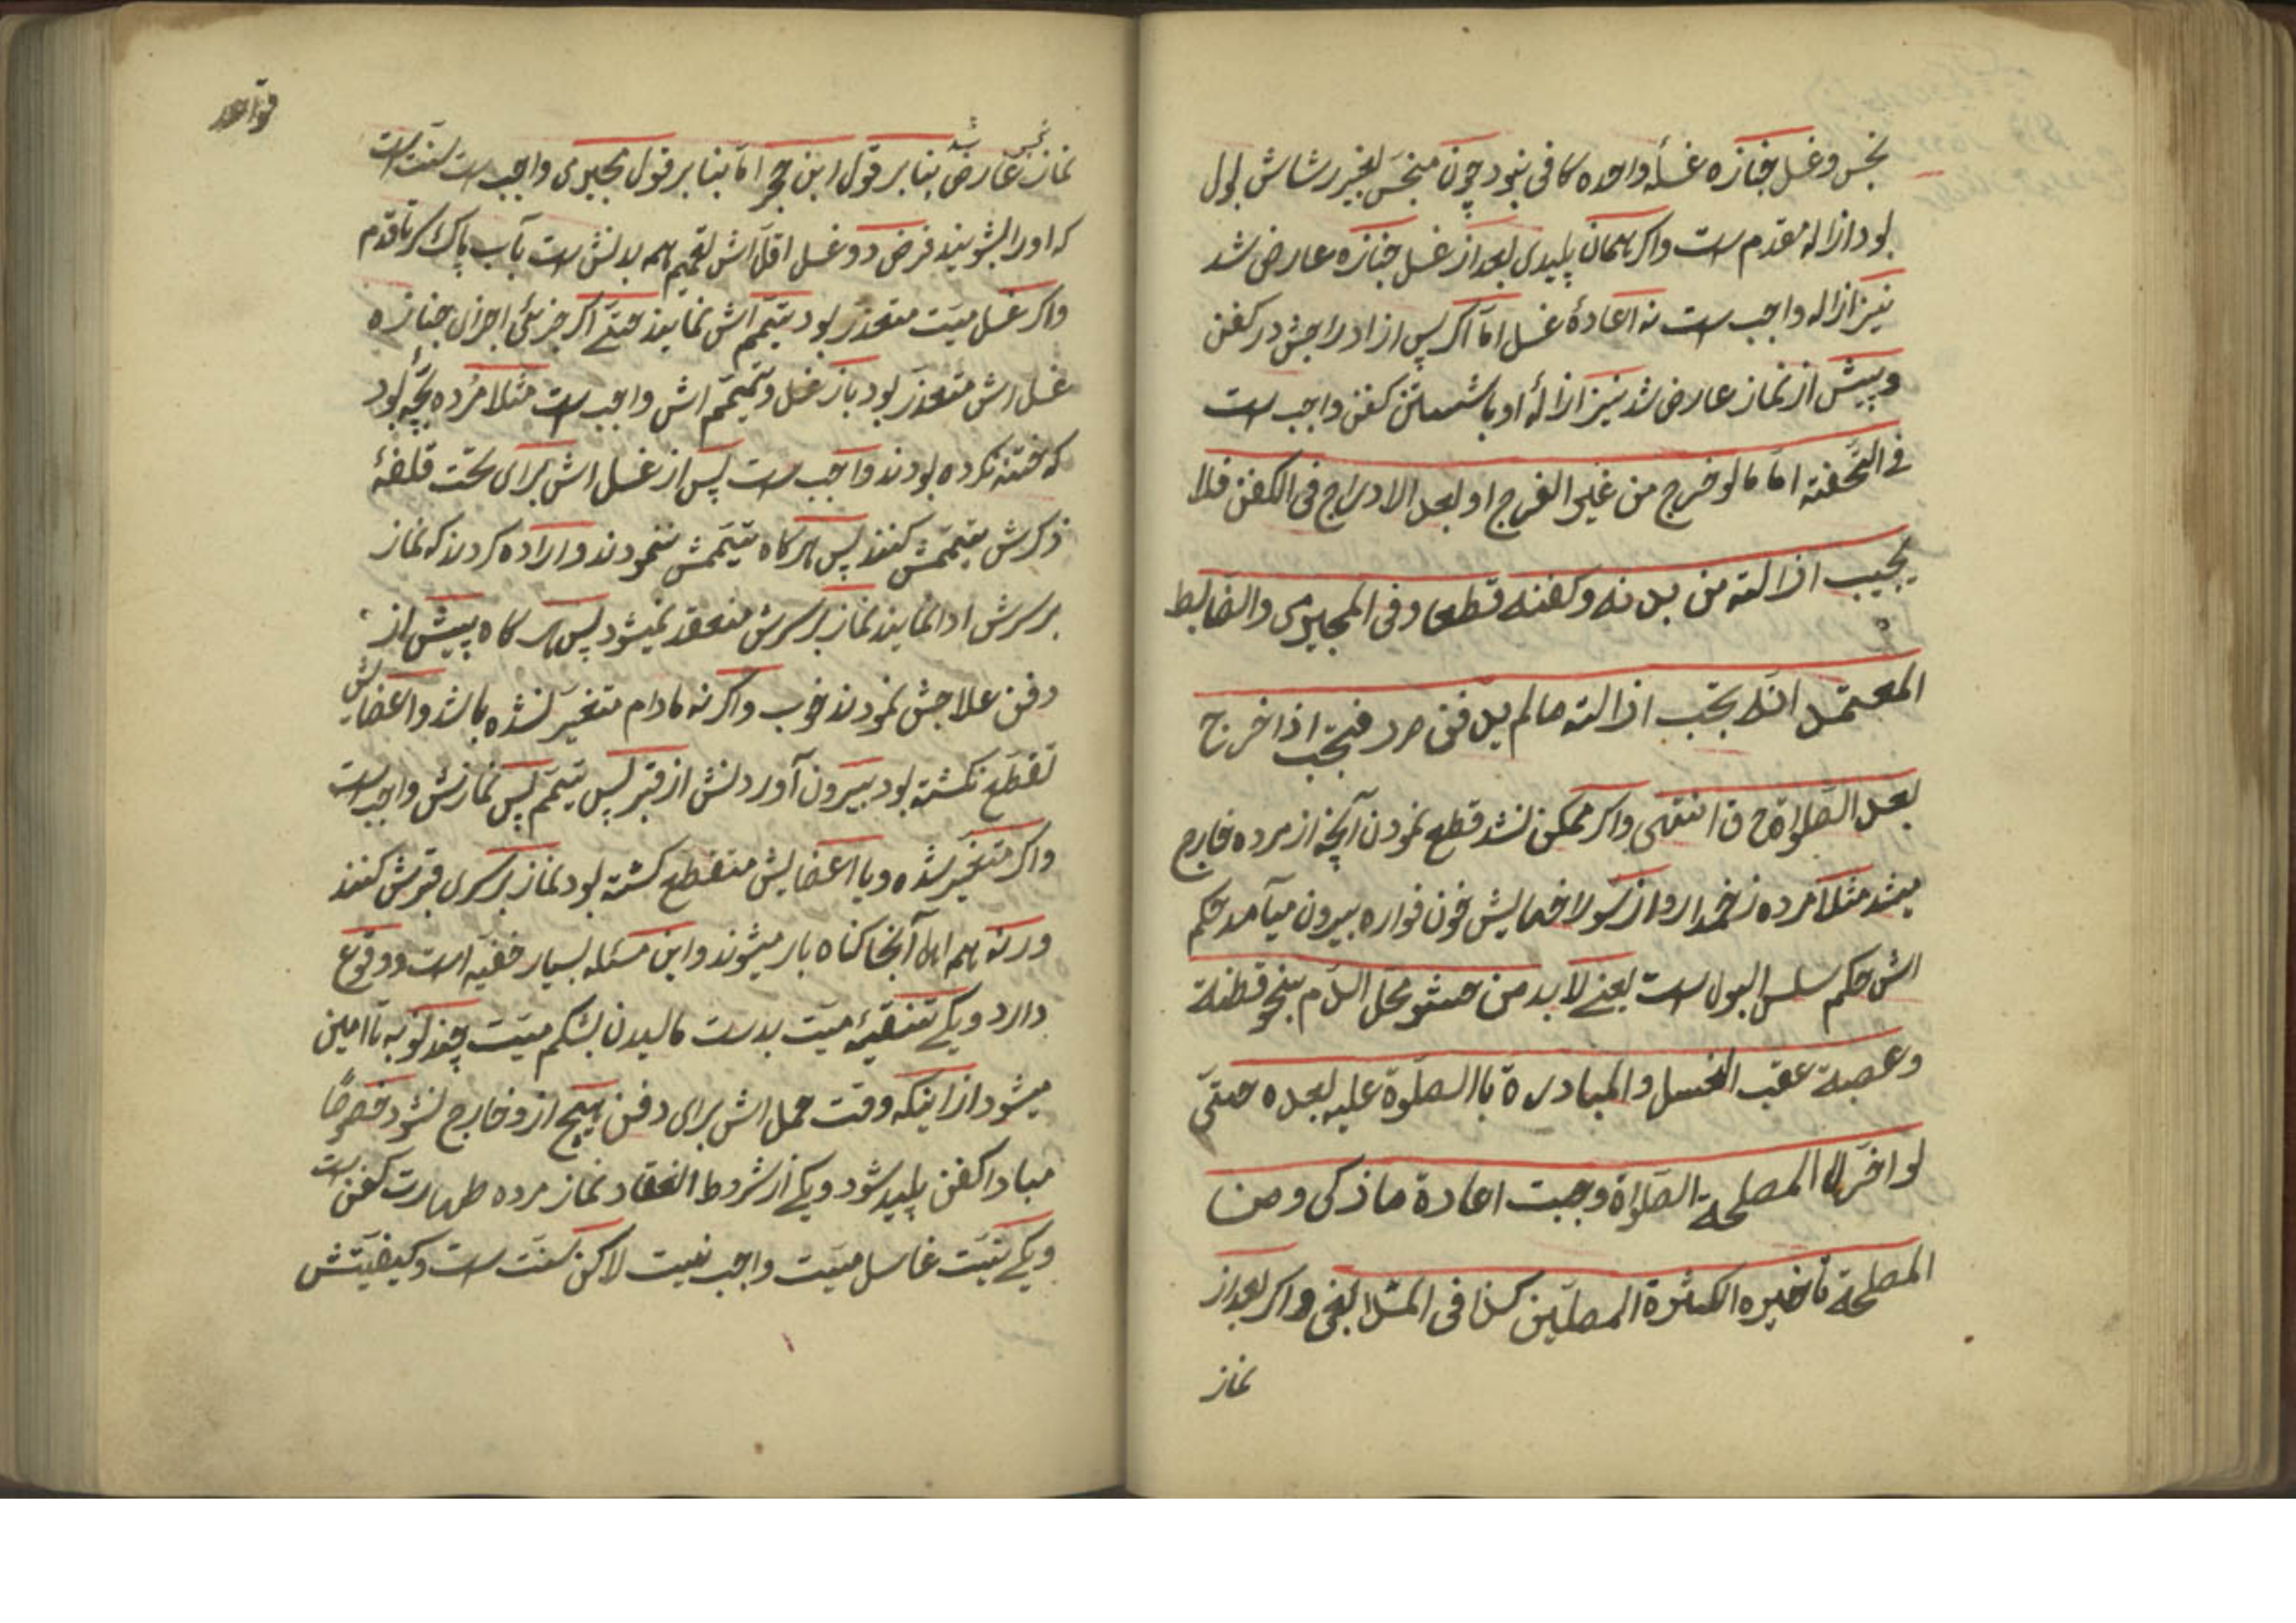 نجس وغسل جنازه غسلهٔ واحده كافی نبود چون منجس بغير رشاش بول
بود ازاله مقدم ست واكر همان پليدی بعد از غسل جنازه عارض شد
نيز ازاله واجب ست نه اعادهٔ غسل امّا اكر پس از ادراجش در كفن
وپيش از نماز عارض شد نيز ازالهٔ او با شستن كفن واجب ست
فی التّحفته امّا ما لو خرج من غير الفرج او بعد الادراج فی الكفن فلا
يجب ازالته من بدنه وكفنه قطعا وفی المجيرمی والضابط
المعتمد انّه يجب ازالته مالم يدفن م ر فيجب اذا خرج
بعد الصّلواة ح ق انتهی واكر ممكن نشد قطع نمودن آنچه از مرده خارج
ميشد مثلا مرده زخمدار واز سولاخهايش خون فواره بيرون ميآمد حكم
اش حكم سلس البول ست يعنے لا بد من حشو محل الدّم بنحو قطنة
وعصبة عقب الغسل والمبادرة باالصّلوة عليه بعده حتّی
لو اخّر لا لمصلحة الصّلواة وجبت اعادة ما ذكی ومن
المصلحة تأخيره الكثرة المصلّين كذا فی المثلا البغی واكر بعد از
نماز
نماز نجس عارض شد بنا بر قول ابن حجر امّا بنا بر قول بجيرمی واجب ست سنّت ست
كه اورا بشويند فرض دو غسل اقلّ اش تعميم همه بدنش ست بآب پاك سر تا قدم
واكر غسل ميّت متعذر بود تيمّم اش نمايند حتّے اكر جزئی اجزای جنازه
غسل اش متعذر بود باز غسل وتيمّم اش واجب ست مثلا مرده بچّه بود
كه ختنه نكرده بودند واجب ست پس از غسل اش برای تحت قلفهٔ
ذكرش تيمّمش كنند پس هركاه تيمّمش ننمودند واراده كردند كه نماز
بر سرش ادا نمايند نماز بر سرش منعقد نميشود پس هر كاه پيش از
دفن علاجش نمودند خوب واكر نه مادام متغيّر نشده باشد واعضايش
تقطّع نكشته بود بيرون آوردنش از قبر پس تيمّم پس نمازش واجب است
واكر متغيّر شده ويا اعضايش متقطع كشته بود نماز بر سری قبرش كنند
ورنه همه اهل آنجا كناه بار ميشوند واين مسئله بسيار خفيّه است ووقوع
دارد ويكے تنقيهٔ ميّت بدست ماليدن بشكم ميّت چند نوبه تا امين
ميشود از اينكه وقت حمل اش برای دفن هيچ ازو خارج نشود خصوصًا
مبادا كفن پليد شود ويكے از شروط انعقاد نماز مرده طهارت كفن ست
ويكے نيّت غاسل ميّت واجب نيست لاكن سنّت ست وكيفيّتش